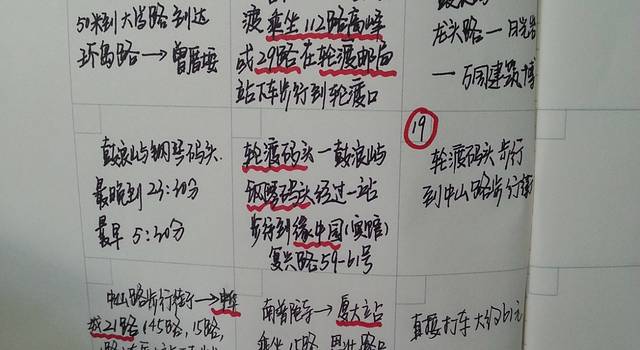 50米到大当路到达
环岛路→曾厝垵
渡乘坐112路高峰
或29路在轮渡邮局
站下车步行到轮渡口
龙头路一日光岩
一万国建筑博
鼓浪屿钢琴码头
最晚到23:30分
最早5:30分
轮渡码头一鼓浪屿
钢琴码头经过一站
步行到缘中国(宾馆)
复兴路59-61号
19
轮渡码头步行
到中山路步行街
中山路步行街→
21路(45路,15路,
南普陀寺→厦大站
乘坐15路
直接打车大约61元